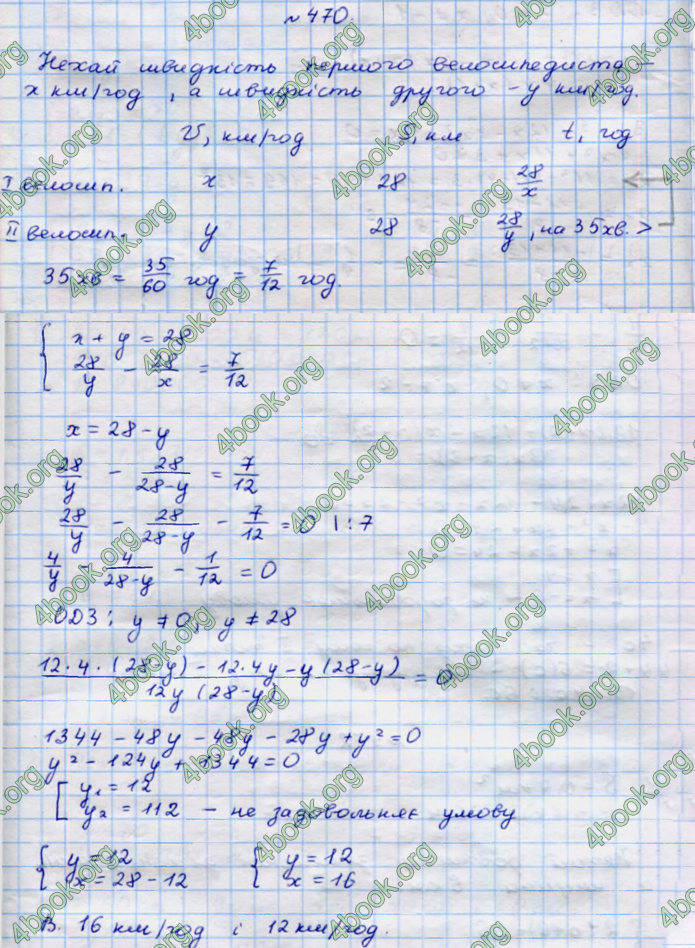 № 470.
Нехай швидкість першого велосипедиста –
x км/год, а швидкість другого – y км/год.
V, км/год S, км t, год
I велосип. x 28 28/x
II велосип. y 28 28/y, на 35хв. >
35хв = 35/60 год = 7/12 год.
x + y = 28
28/y - 28/x = 7/12
x = 28 - y
28/y - 28/(28-y) = 7/12
28/y - 28/(28-y) - 7/12 = 0 |:7
4/y - 4/(28-y) - 1/12 = 0
ОДЗ: y ≠ 0, y ≠ 28
(12·4·(28-y) - 12·4y - y(28-y))/(12y(28-y)) = 0
1344 - 48y - 48y - 28y + y² = 0
y² - 124y + 1344 = 0
y₁ = 12
y₂ = 112 – не задовольняє умову
y = 12 y = 12
x = 28 - 12 x = 16
В. 16 км/год і 12 км/год.
4book.org